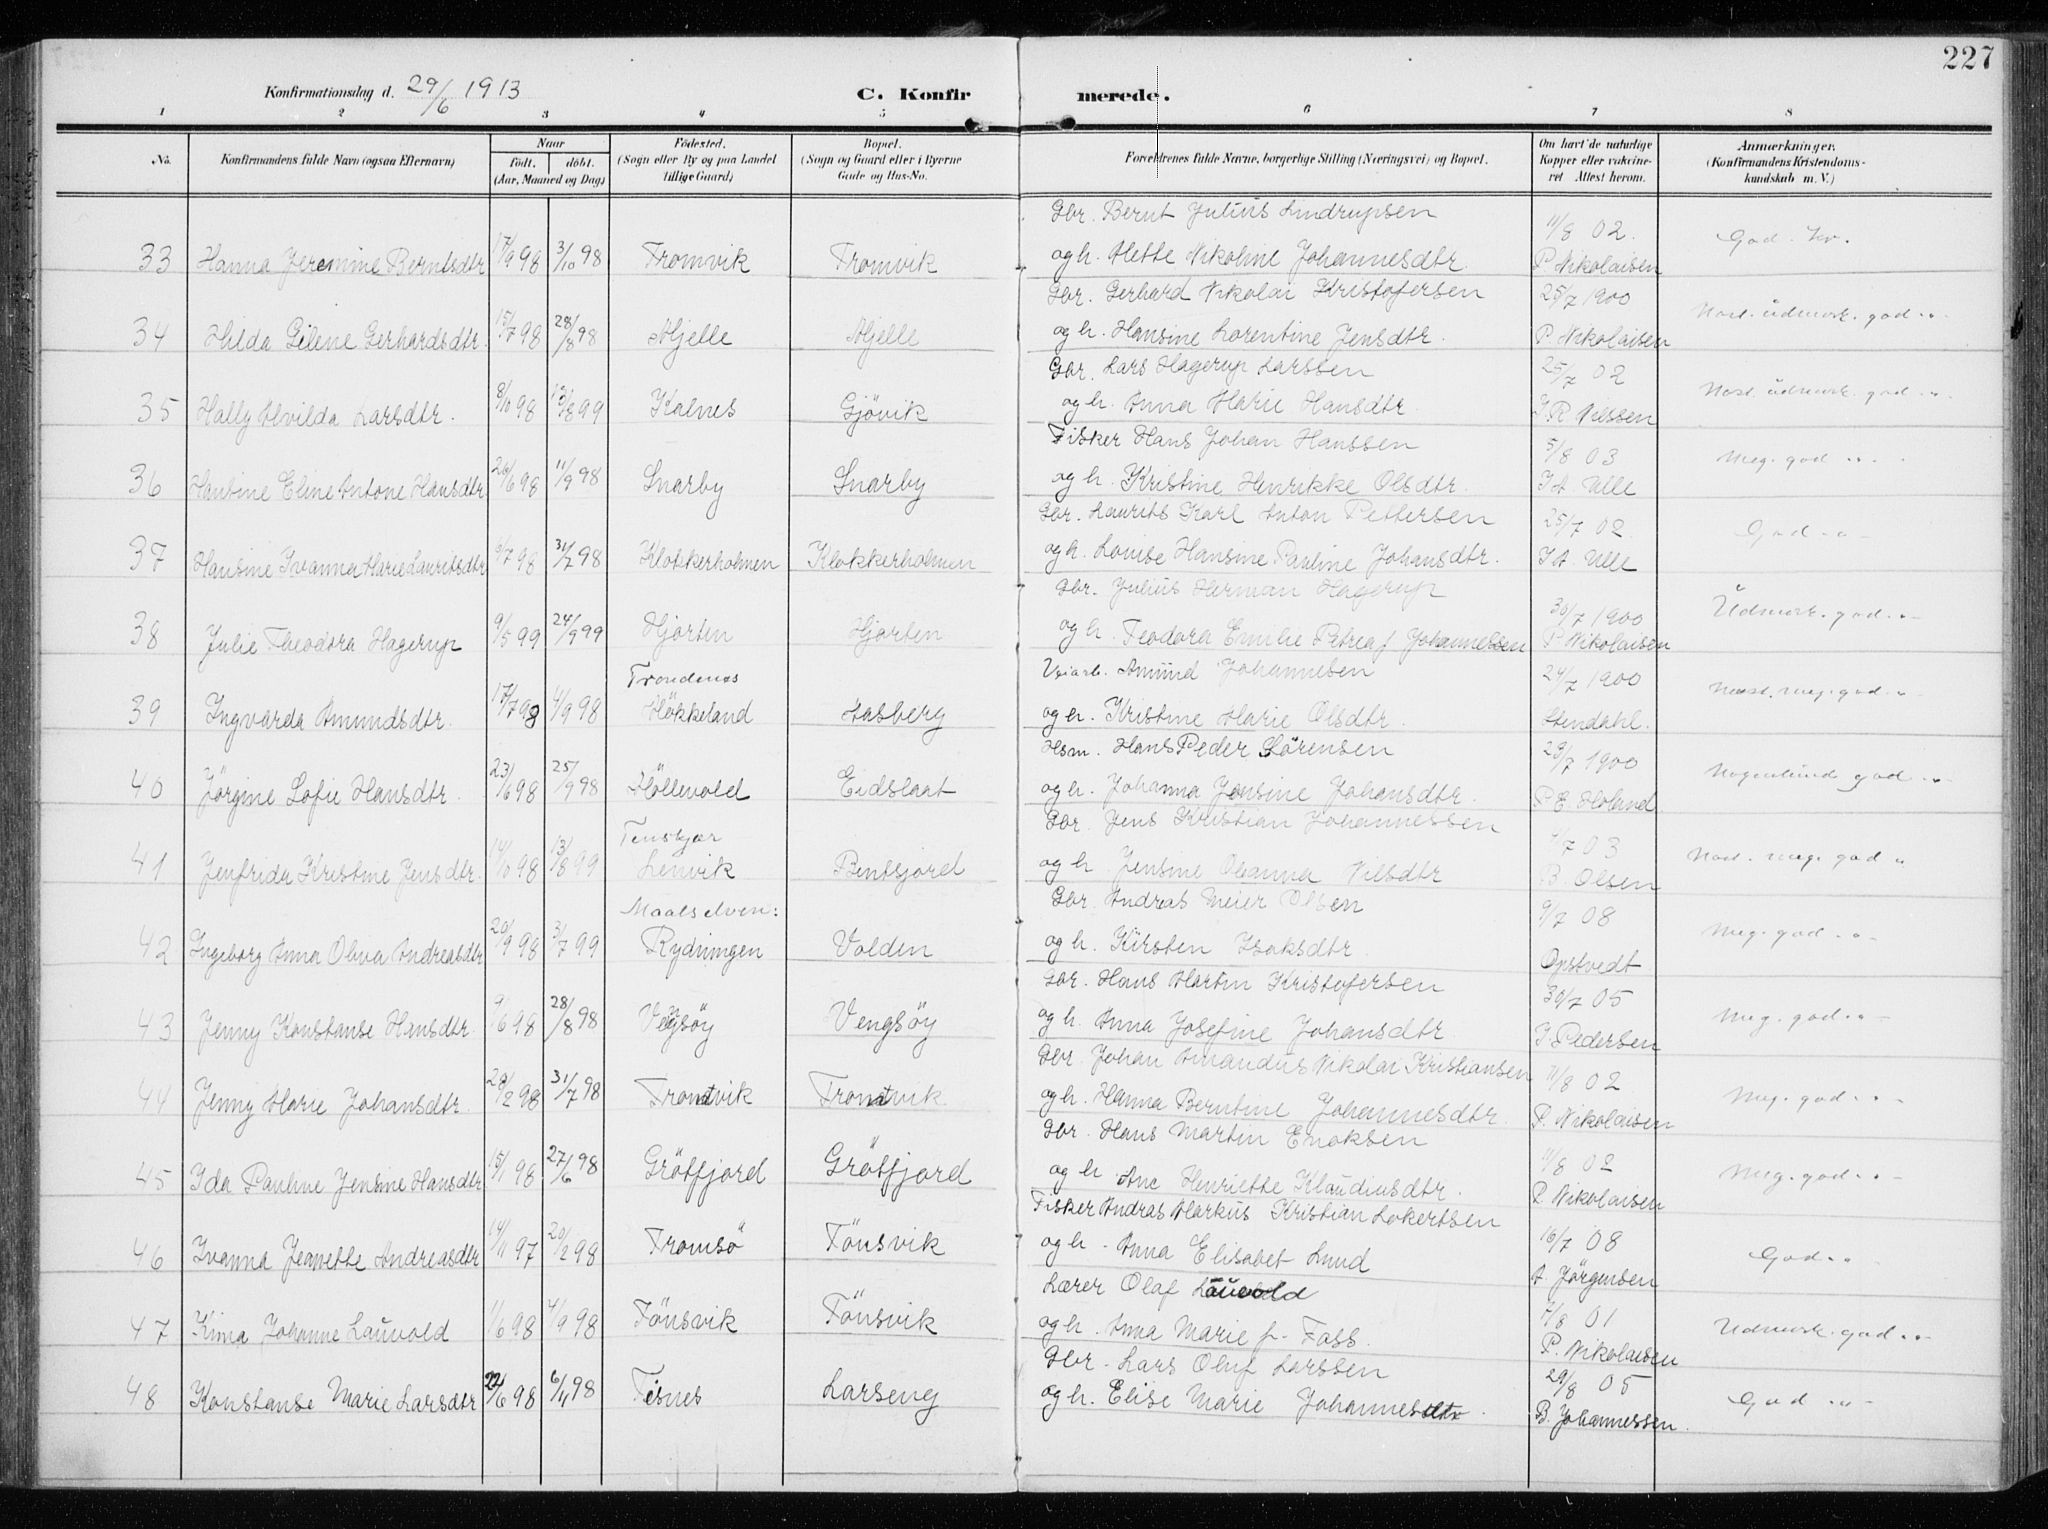 227
Konfirmationsdag d. 29/6 1913
C. Konfirmerede.
1 2 3 4 5 6 7 8
No. Konfirmandens fulde Navn (ogsaa Efternavn) Naar født, døbt, (Aar, Maaned og Dag) Fødested. (Sogn eller By og paa Landet tillige Gaard) Bopæl. (Sogn og Gaard eller i Byerne Gade og Hus-No. Forældrenes fulde Navne, borgerlige Stilling (Næringsvei) og Bopæl. Om havt de naturlige Kopper eller vakcineret Attest herom. Anmærkninger. (Konfirmandens Kristendomskundskab m. V.)
Gbr. Bernt Julius Lindrupsen 11/8 02.
33 Hanna Jeremine Berntsdtr 17/9 98 3/10 98 Tromvik Tromvik og h. Mette Nikoline Johannesdtr. P. Nikolaisen God. Kv.
Gbr. Gerhard Nikolai Kristofersen 25/7 1900
34 Hilda Gilene Gerhardsdtr. 15/7 98 28/8 98 Mjelle Mjelle og h. Hansine Lorentine Jensdtr. P. Nikolaisen Næst. üdmerk. god. "
Gbr. Lars Hagerup Larssen 25/7 02
35 Hally Alvilda Larsdtr. 8/10 98 13/8 99 Kalnes Gjövik og h. Anna Marie Hansdtr. J. R. Nilssen Næst. üdmerk. god. "
Fisker Hans Johan Hanssen 5/8 03
36 Hansine Eline Antone Hansdtr 26/6 98 11/9 98 Snarby Snarby og h. Kristine Henrikke Olsdtr. J A. Ulle Meg. god "
Gbr. Laurits Karl Anton Pettersen 25/7 02.
37 Hansine Ivanna Marie Lauritsdtr 9/7 98 31/7 98 Klokkerholmen Klokkerholmen og h. Louise Hansine Pauline Johansdtr. J A. Ulle God "
Gbr. Julius Herman Hagerup 30/7 1900
38 Julie Theodora Hagerup 9/5 99 24/9 99 Hjorten Hjorten og h. Teodora Emilie Petrea f Johannessen P. Nikolaisen Üdmerk. god. "
Trondenes Veiarb. Amünd Johannesen 24/7 1900
39 Ingvarda Amundsdtr. 17/7 98 4/9 98 Hökkeland Aasberg og h. Kristine Marie Olsdtr. Stendahl. Næst. meg. god. "
Hsm. Hans Peder Sörensen 29/7 1900
40 Jörgine Sofie Hansdtr. 23/6 98 25/9 98 Höllevold Eidslaat og h. Johanna Jensine Johansdtr. P. E. Moland Nogenlund god. "
Tenskjær Gbr. Jens Kristian Johannessen /7 03
41 Jenfrida Kristine Jensdtr. 14/10 98 13/8 99 Lenvik Bentsjord og h. Jensine Oleanna Nilsdtr B. Olsen Næst. meg. god "
Maalselven: Gbr. Andreas Meier Olsen 9/7 08
42 Ingeborg Anna Oliva Andreasdtr 20/9 98 3/7 99 Rydningen Volden og h. Kirsten Isaksdtr. Opstvedt Meg. god. "
Gbr. Hans Martin Kristofersen 30/7 05
43 Jenny Konstanse Hansdtr. 9/6 98 28/8 98 Vengsöy Vengsöy og h. Anna Josefine Johansdtr J. Pedersen Meg. god. "
Gbr. Johan Amandus Nikolai Kristiansen 11/8 02
44 Jenny Marie Johansdtr. 28/2 98 31/7 98 Tromvik Tromvik og h. Hanna Berntine Johannesdtr. P. Nikolaisen Meg. god. "
Gbr. Hans Martin Enoksen 11/8 02
45 Ida Pauline Jensine Hansdtr 15/1 98 27/6 98 Grötfjord Grötfjord og h. Ane Henriette Klaudiusdtr. P. Nikolaisen Meg. god. "
Fisker Andras Markus Kristian Lokertsen 16/7 08
46 Ivanna Jeanette Andreasdtr 14/11 97 20/2 98 Tromsö Tönsvik og h. Anna Elisabet Lund A. Jörgensen God. "
Lærer Olaf Lauvold 7/8 01
47 Kima Johanne Lauvold 1/6 98 4/9 98 Tönsvik Tönsvik og h. Anna Marie f. Foss. P. Nikolaisen Udmerk. god. "
Gbr. Lars Oluf Larssen 29/8 05
48 Konstanse Marie Larsdtr 22/6 98 6/11 98 Tisnes Larseng og h. Elise Marie Johannesdtr. B. Johannessen. God "